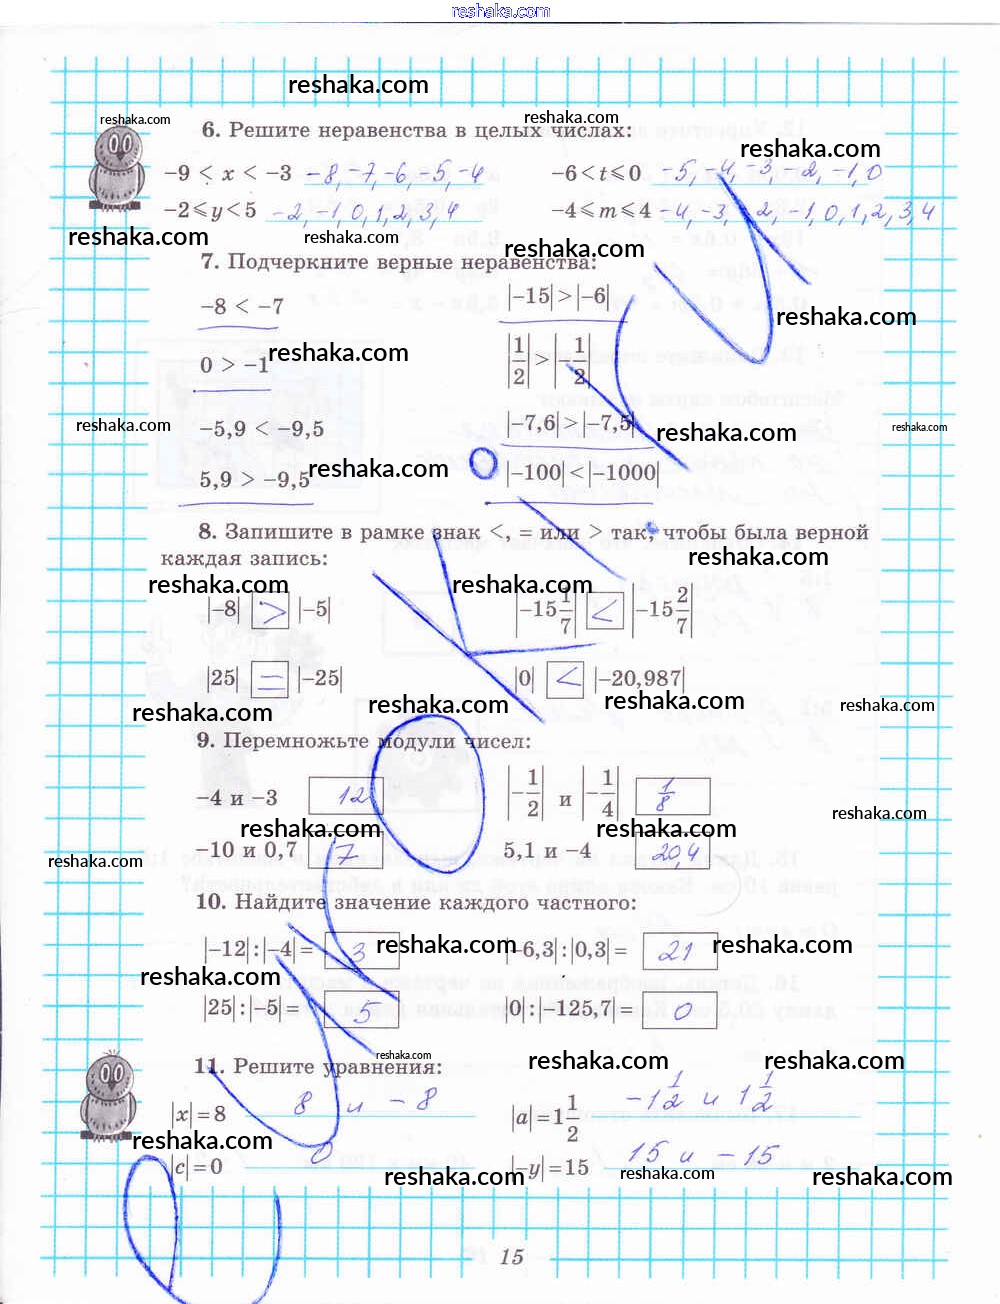 reshaka.com
reshaka.com
reshaka.com reshaka.com
6. Решите неравенства в целых числах:
reshaka.com
−9 < x < −3 −8, −7, −6, −5, −4 −6 < t ⩽ 0 −5, −4, −3, −2, −1, 0
−2 ⩽ y < 5 −2, −1, 0, 1, 2, 3, 4 −4 ⩽ m ⩽ 4 −4, −3, −2, −1, 0, 1, 2, 3, 4
reshaka.com reshaka.com reshaka.com
7. Подчеркните верные неравенства:
−8 < −7 |−15| > |−6|
reshaka.com
0 > −1 reshaka.com |1/2| > |−1/2|
reshaka.com reshaka.com reshaka.com
−5,9 < −9,5 |−7,6| > |−7,5|
5,9 > −9,5 reshaka.com |−100| < |−1000|
8. Запишите в рамке знак <, = или > так, чтобы была верной
каждая запись: reshaka.com
reshaka.com reshaka.com
|−8| > |−5| |−15 1/7| < |−15 2/7|
|25| = |−25| |0| < |−20,987|
reshaka.com reshaka.com reshaka.com reshaka.com
9. Перемножьте модули чисел:
−4 и −3 12 |−1/2| и |−1/4| 1/8
reshaka.com reshaka.com reshaka.com
−10 и 0,7 7 5,1 и −4 20,4
10. Найдите значение каждого частного:
|−12| : |−4| = 3 |−6,3| : |0,3| = 21
reshaka.com reshaka.com reshaka.com
|25| : |−5| = 5 |0| : |−125,7| = 0
reshaka.com reshaka.com reshaka.com
11. Решите уравнения:
|x| = 8 8 и −8 |a| = 1 1/2 −1 1/2 и 1 1/2
reshaka.com
|c| = 0 0 |−y| = 15 15 и −15
reshaka.com reshaka.com
15